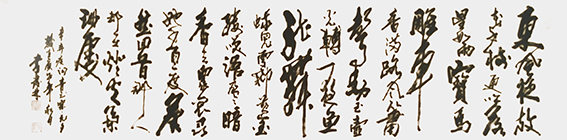 東風夜放
花千樹更吹落
星如雨寶馬
雕車
香滿路鳳簫
聲動玉壺
光轉一夜魚
龍舞
蛾兒雪柳黃金
縷笑語盈盈暗
香去眾裏尋
他千百度驀
然回首那人
却在燈火闌
珊處
辛棄疾詞青玉案元夕